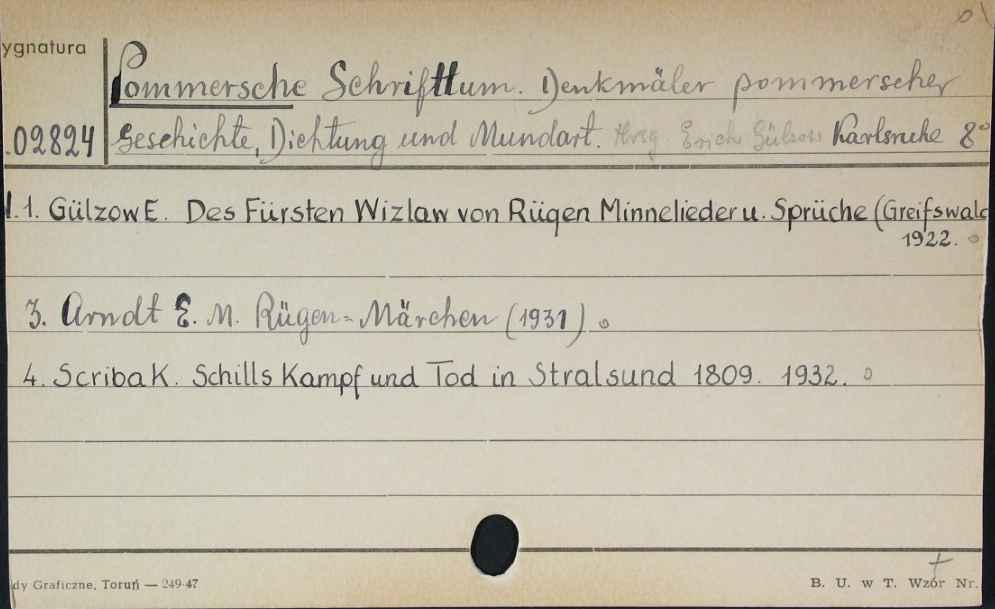 ygnatura
Pommersche Schrifttum. Denkmäler pommerscher
02824 Geschichte, Dichtung und Mundart. Hrsg Erich Gülzow Karlsruhe 8°
1.1. Gülzow E. Des Fürsten Wizlaw von Rügen Minnelieder u. Sprüche (Greifswald
1922.
3. Arndt E. M. Rügen=Märchen (1931)
4. Scriba K. Schills Kampf und Tod in Stralsund 1809. 1932.
dy Graficzne, Toruń — 249-47
B. U. w T. Wzór Nr.